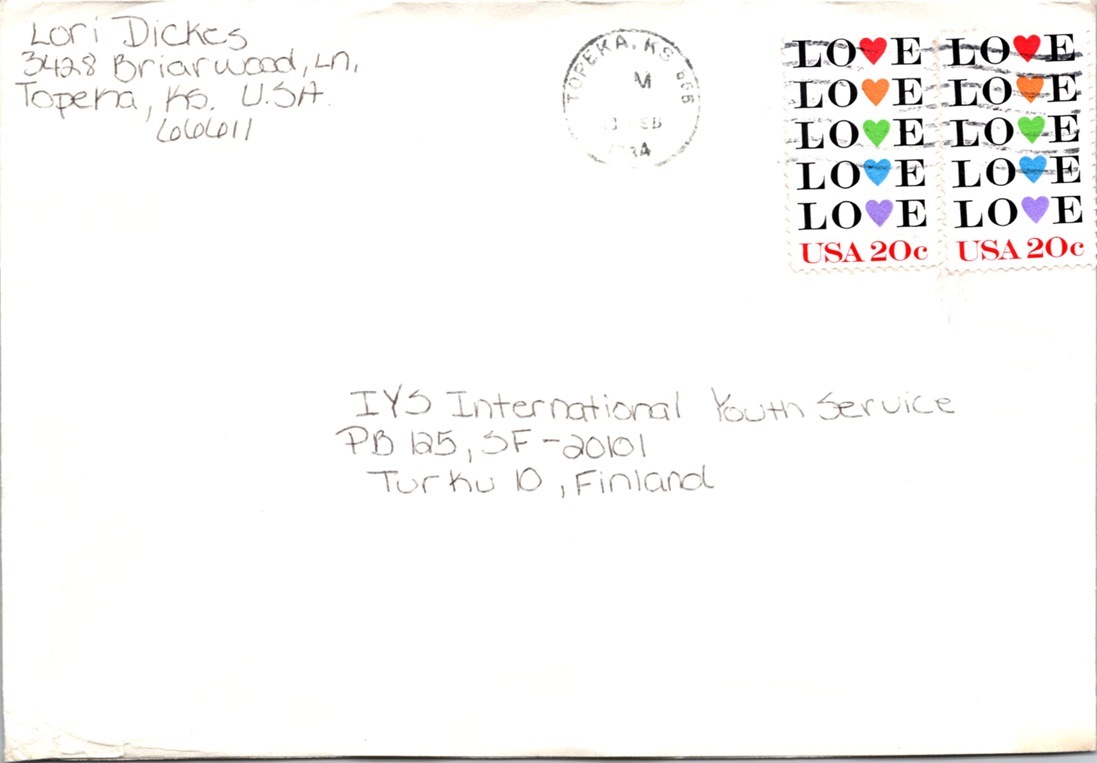 Lori Dickes
3428 Briarwood, Ln,
Topeka, Ks. U.S.A.
66611
TOPEKA, KS 666
M
LO♥E
LO♥E
LO♥E
LO♥E
LO♥E
USA 20c
LO♥E
LO♥E
LO♥E
LO♥E
LO♥E
USA 20c
IYS International Youth Service
PB 125, SF-20101
Turku 10, Finland